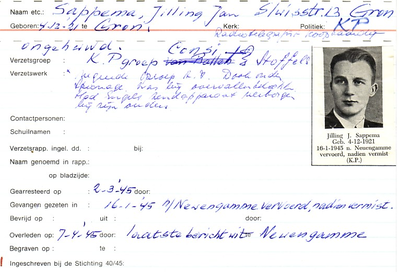 Naam etc.: Sappema, Jilling Jan Sluisstr. 13 Gron
Geboren: 4-12-21 te Gron. Kerk: Politiek: KP
ongehuwd.
Verzetsgroep: K.P. groep & Stoffels
Verzetswerk
Had Engels zendapparaat verborgen
bij zijn ouders.
Contactpersonen:
Schuilnamen:
Verzetsrapp. ingel. dd. : bij:
Naam genoemd in rapp.:
op bladzijde:
Jilling J. Sappema
Geb. 4-12-1921
16-1-1945 n. Neuengamme
vervoerd, nadien vermist
(K.P.)
Gearresteerd op 2-3-'45 door:
Gevangen gezeten in: 16-1-'45 n/Neuengamme vervoerd, nadien vermist.
Bevrijd op : uit door:
Overleden op: 7-4-'45 door: laatste bericht uit Neuengamme
Begraven op : te
Ingeschreven bij de Stichting 40/45: